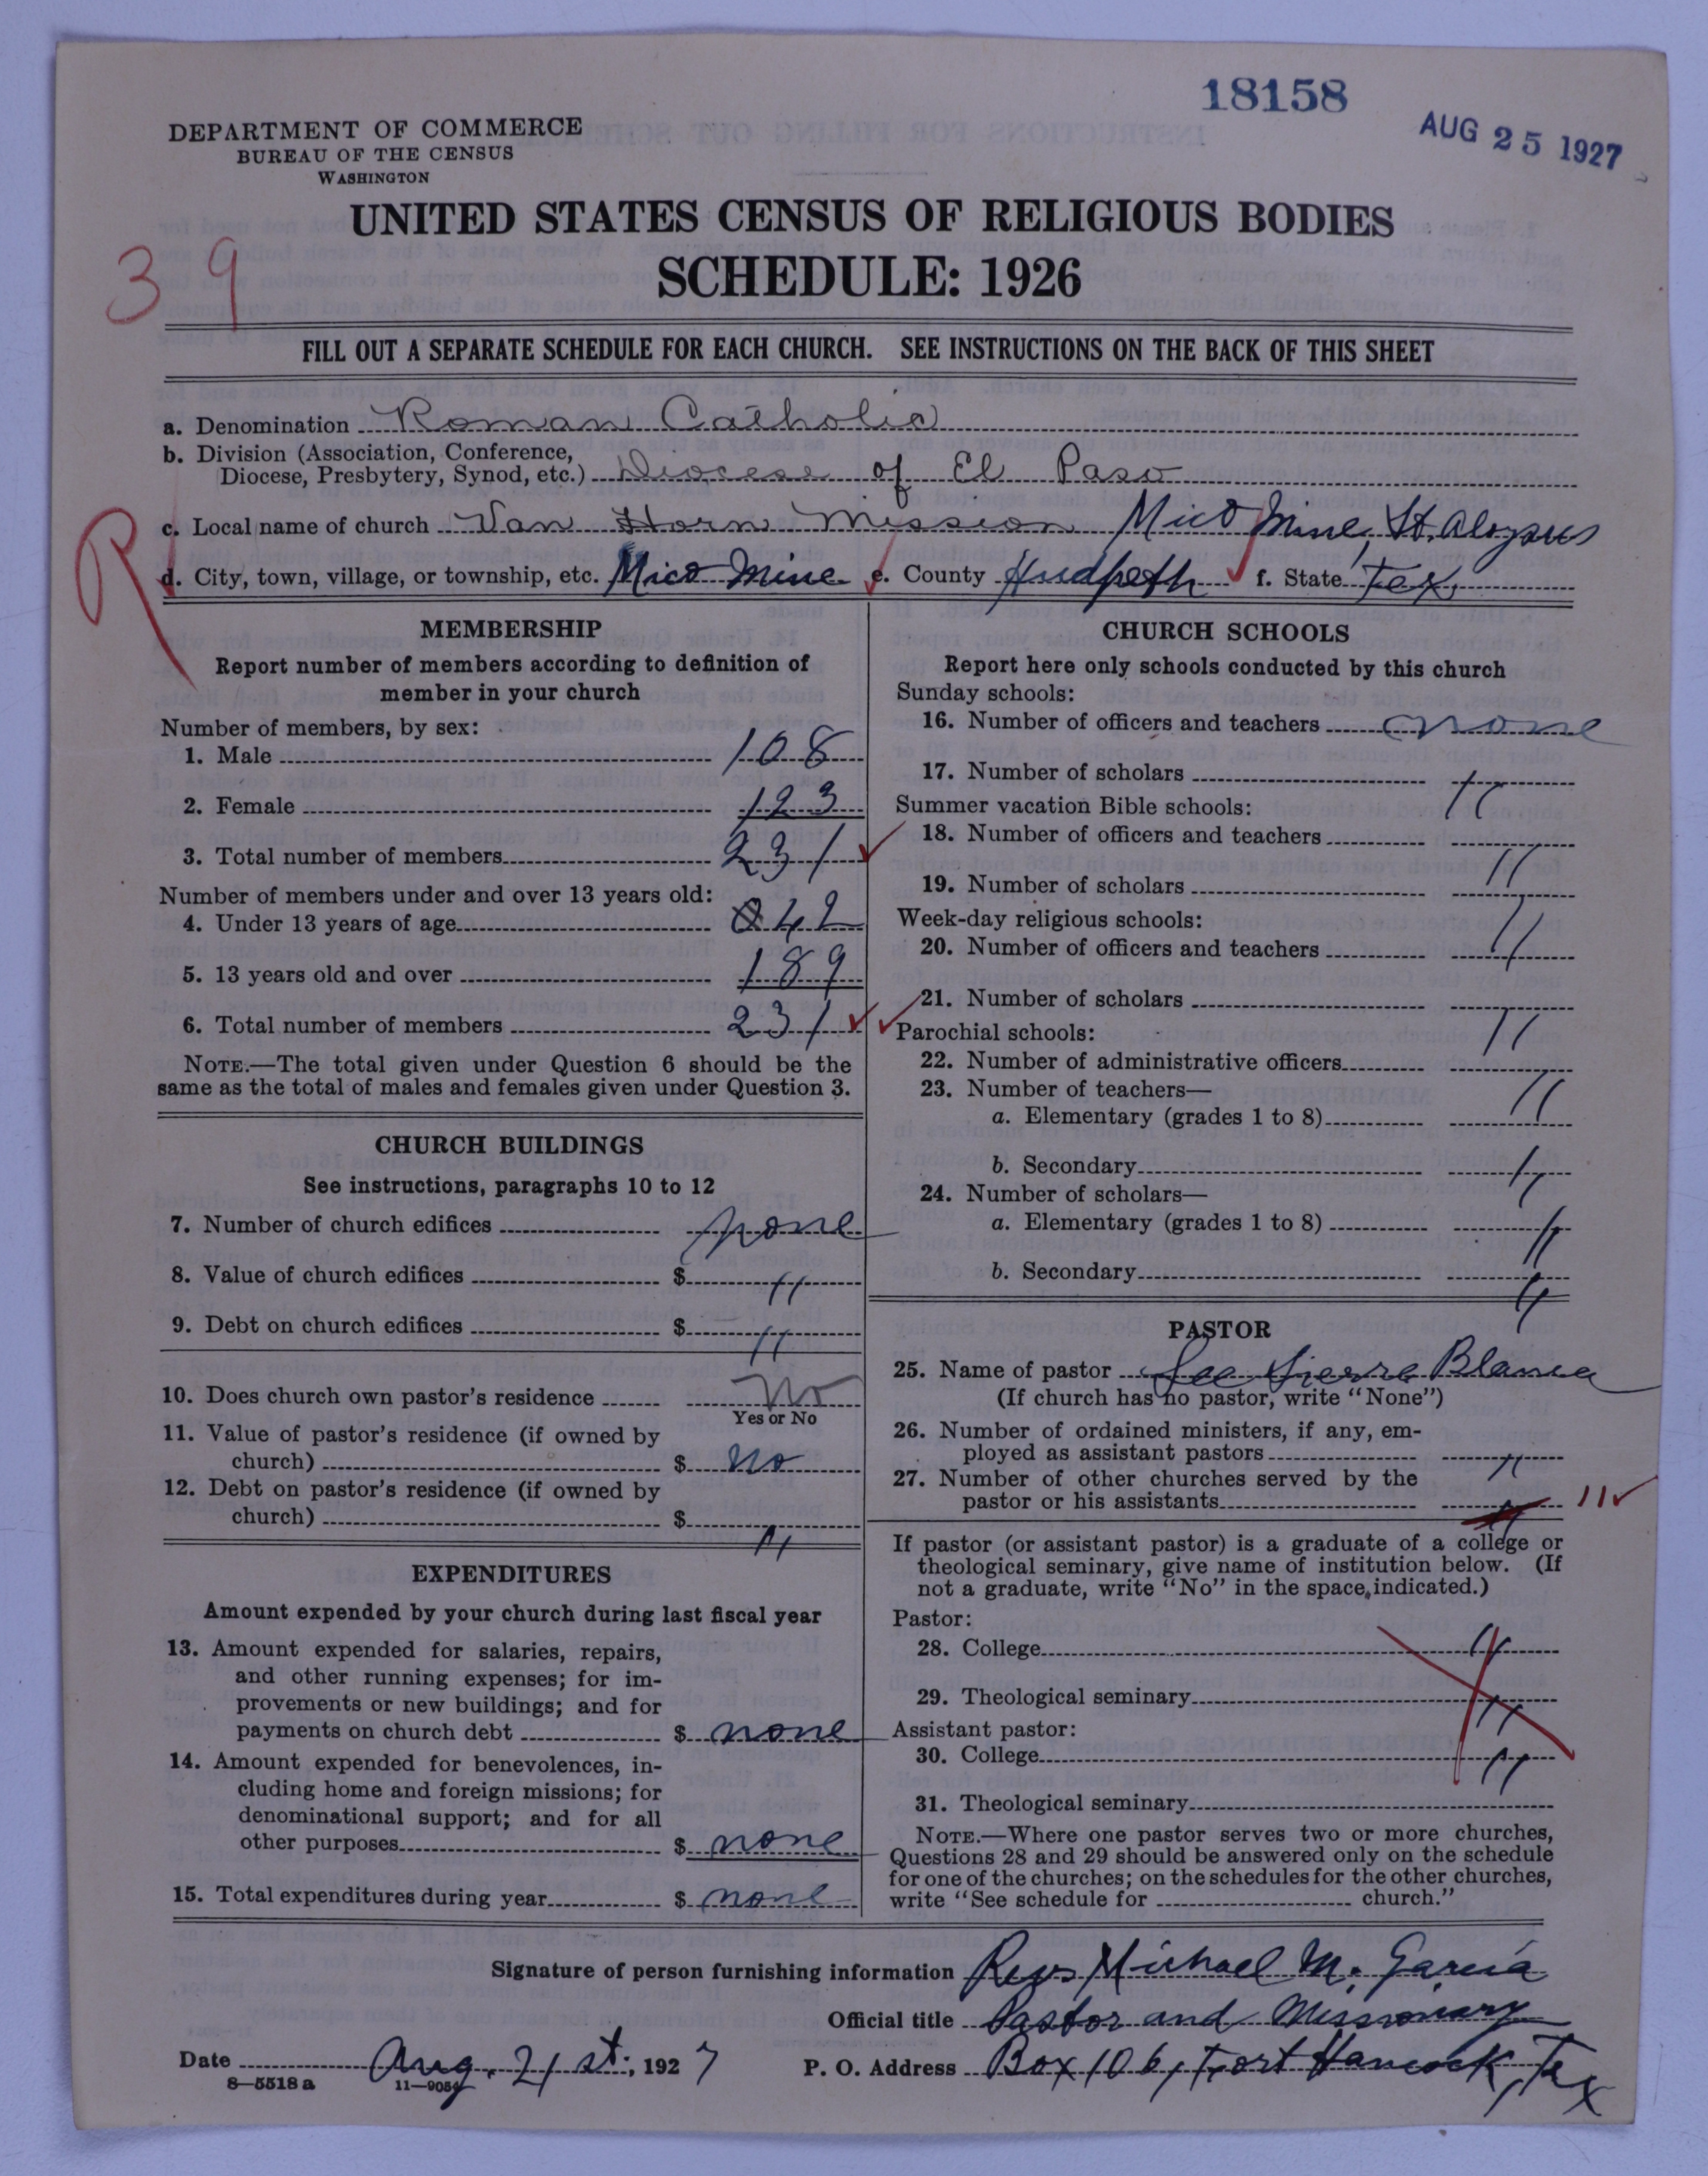 18158
AUG 25 1927
DEPARTMENT OF COMMERCE
BUREAU OF THE CENSUS
WASHINGTON
UNITED STATES CENSUS OF RELIGIOUS BODIES
SCHEDULE: 1926
39
FILL OUT A SEPARATE SCHEDULE FOR EACH CHURCH. SEE INSTRUCTIONS ON THE BACK OF THIS SHEET
a. Denomination Roman Catholic
b. Division (Association, Conference,
Diocese, Presbytery, Synod, etc.) Diocese of El Paso
c. Local name of church Van Horn Mission Mico Mine, St. Aloysus
R
d. City, town, village, or township, etc. Mico Mine e. County Hudpeth f. State Tex.
MEMBERSHIP
Report number of members according to definition of
member in your church
Number of members, by sex:
1. Male 108
2. Female 123
3. Total number of members 231
Number of members under and over 13 years old:
4. Under 13 years of age 42
5. 13 years old and over 189
6. Total number of members 231
NOTE.—The total given under Question 6 should be the
same as the total of males and females given under Question 3.
CHURCH BUILDINGS
See instructions, paragraphs 10 to 12
7. Number of church edifices none
8. Value of church edifices $ "
9. Debt on church edifices $ "
10. Does church own pastor's residence No
Yes or No
11. Value of pastor's residence (if owned by
church) $ No
12. Debt on pastor's residence (if owned by
church) $ "
EXPENDITURES
Amount expended by your church during last fiscal year
13. Amount expended for salaries, repairs,
and other running expenses; for im-
provements or new buildings; and for
payments on church debt $ none
14. Amount expended for benevolences, in-
cluding home and foreign missions; for
denominational support; and for all
other purposes $ none
15. Total expenditures during year $ none
CHURCH SCHOOLS
Report here only schools conducted by this church
Sunday schools:
16. Number of officers and teachers none
17. Number of scholars "
Summer vacation Bible schools:
18. Number of officers and teachers "
19. Number of scholars "
Week-day religious schools:
20. Number of officers and teachers "
21. Number of scholars "
Parochial schools:
22. Number of administrative officers "
23. Number of teachers—
a. Elementary (grades 1 to 8) "
b. Secondary "
24. Number of scholars—
a. Elementary (grades 1 to 8) "
b. Secondary "
PASTOR
25. Name of pastor See Sierra Blanca
(If church has no pastor, write "None")
26. Number of ordained ministers, if any, em-
ployed as assistant pastors "
27. Number of other churches served by the
pastor or his assistants " 11
If pastor (or assistant pastor) is a graduate of a college or
theological seminary, give name of institution below. (If
not a graduate, write "No" in the space indicated.)
Pastor:
28. College "
29. Theological seminary "
Assistant pastor:
30. College "
31. Theological seminary
NOTE.—Where one pastor serves two or more churches,
Questions 28 and 29 should be answered only on the schedule
for one of the churches; on the schedules for the other churches,
write "See schedule for church."
Signature of person furnishing information Rev Michael M. Garcia
Official title Pastor and Missionary
Date Aug. 21st, 1927 P. O. Address Box 106, Fort Hancock, Tex
8—5518 a 11—9054